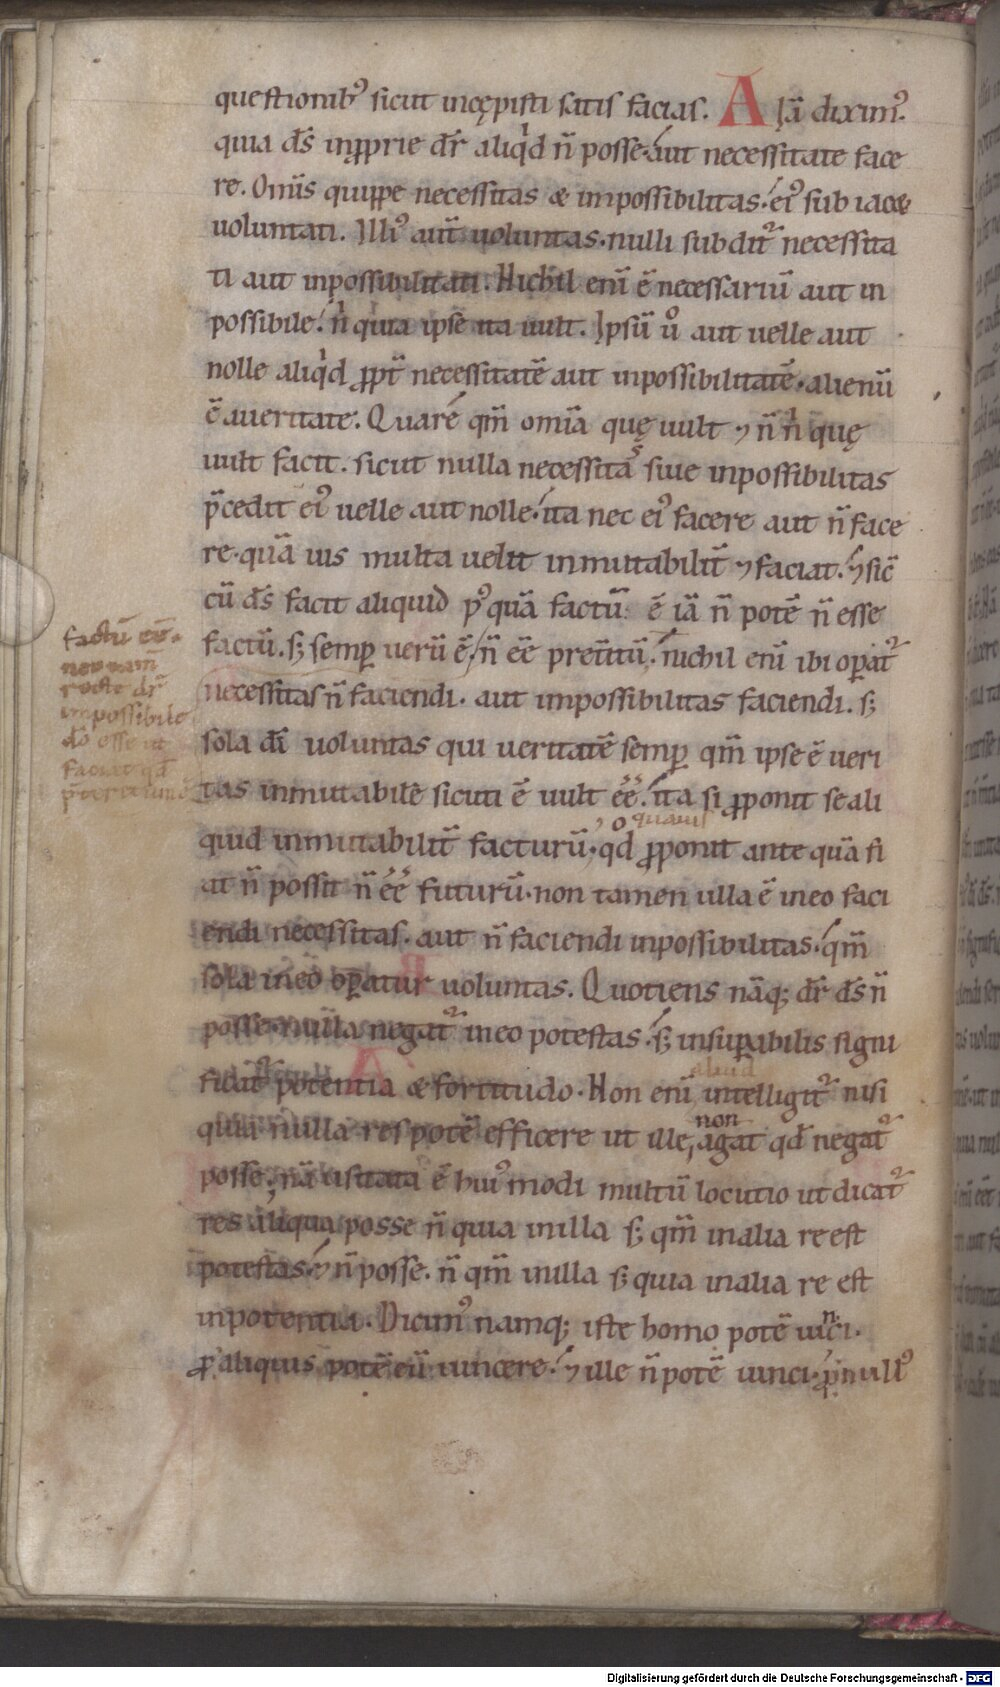 questionib᾽ sicut incępisti satis facias. A Iā diximꝰ.
quia d̄s inꝓprie dr̄ aliq̇d n̄ posse. aut necessitate face
re. Om̄is quippe necessitas & impossibilitas. eiꝰ sub iac&
uoluntati. Illiꝰ aut̄ uoluntas. nulli subdit᷑ necessita
ti aut inpossibilitati. Nichil eni̅ ē necessariū aut in
possibile. n̍ quia ipse ita uult. Ipsū ů aut uelle aut
nolle aliq̇d ꝓpt̄ necessitatē aut inpossibilitatē. alienū
ē aueritate. Quare qm̄ om̅ia quę uult ⁊ n̄ n̍ quę
uult facit. sicut nulla necessitas siue inpossibilitas
p̄cedit eiꝰ uelle aut nolle. ita nec eiꝰ facere aut n̄ face
re. quā uis multa uelit inmutabilit̄ ⁊ faciat. ⁊ sic̄
cū d̄s facit aliquid pꝰ quā factū ē iā n̄ potē n̄ esse
factū. s; semꝑ uerū ē. n̄ ēē pret̄itū. nichil eni̅ ibi oꝑat᷑
necessitas n̄ faciendi. aut impossibilitas faciendi. s;
sola dī uoluntas qui ueritatē semꝑ qm̄ ipse ē ueri
tas inmutabilē sicuti ē uult ēē. ita si ꝓponit se ali
quamuis
quid inmutabilit̄ facturū. qd̄ ꝓponit ante quā fi
at n̄ possit n̄ ēē futurū. non tamen ulla ē ineo faci
endi necessitas. aut n̄ faciendi inpossibilitas. qm̄
sola ineo oꝑatur uoluntas. Quotiens nāq; dr̄ d̄s n̄
posse. nulla negat᷑ ineo potestas. s; insuꝑabilis signi
aliud
ficat᷑ potentia & fortitudo. Non eni̅ intelligit᷑ nisi
non
quia nulla res potē efficere ut ille, agat qd̄ negat᷑
posse. nā usitata ē huiꝰmodi multū locutio ut dicat᷑
res aliqua posse n̄ quia inilla s; qm̄ inalia re est
potestas. ⁊ n̄ posse. n̄ qm̄ inilla s; quia inalia re est
inpotentia. Dicimꝰ namq; iste homo potē uinci.
ꝓ aliquis potē eū uincere. ⁊ ille n̄ potē uinci. ꝓ nullꝰ
factū ē.
non nam
recte dr̄
impossibile
dō esse ut
faciat qd̄
p̄teritum ē
Digitalisierung gefördert durch die Deutsche Forschungsgemeinschaft - DFG